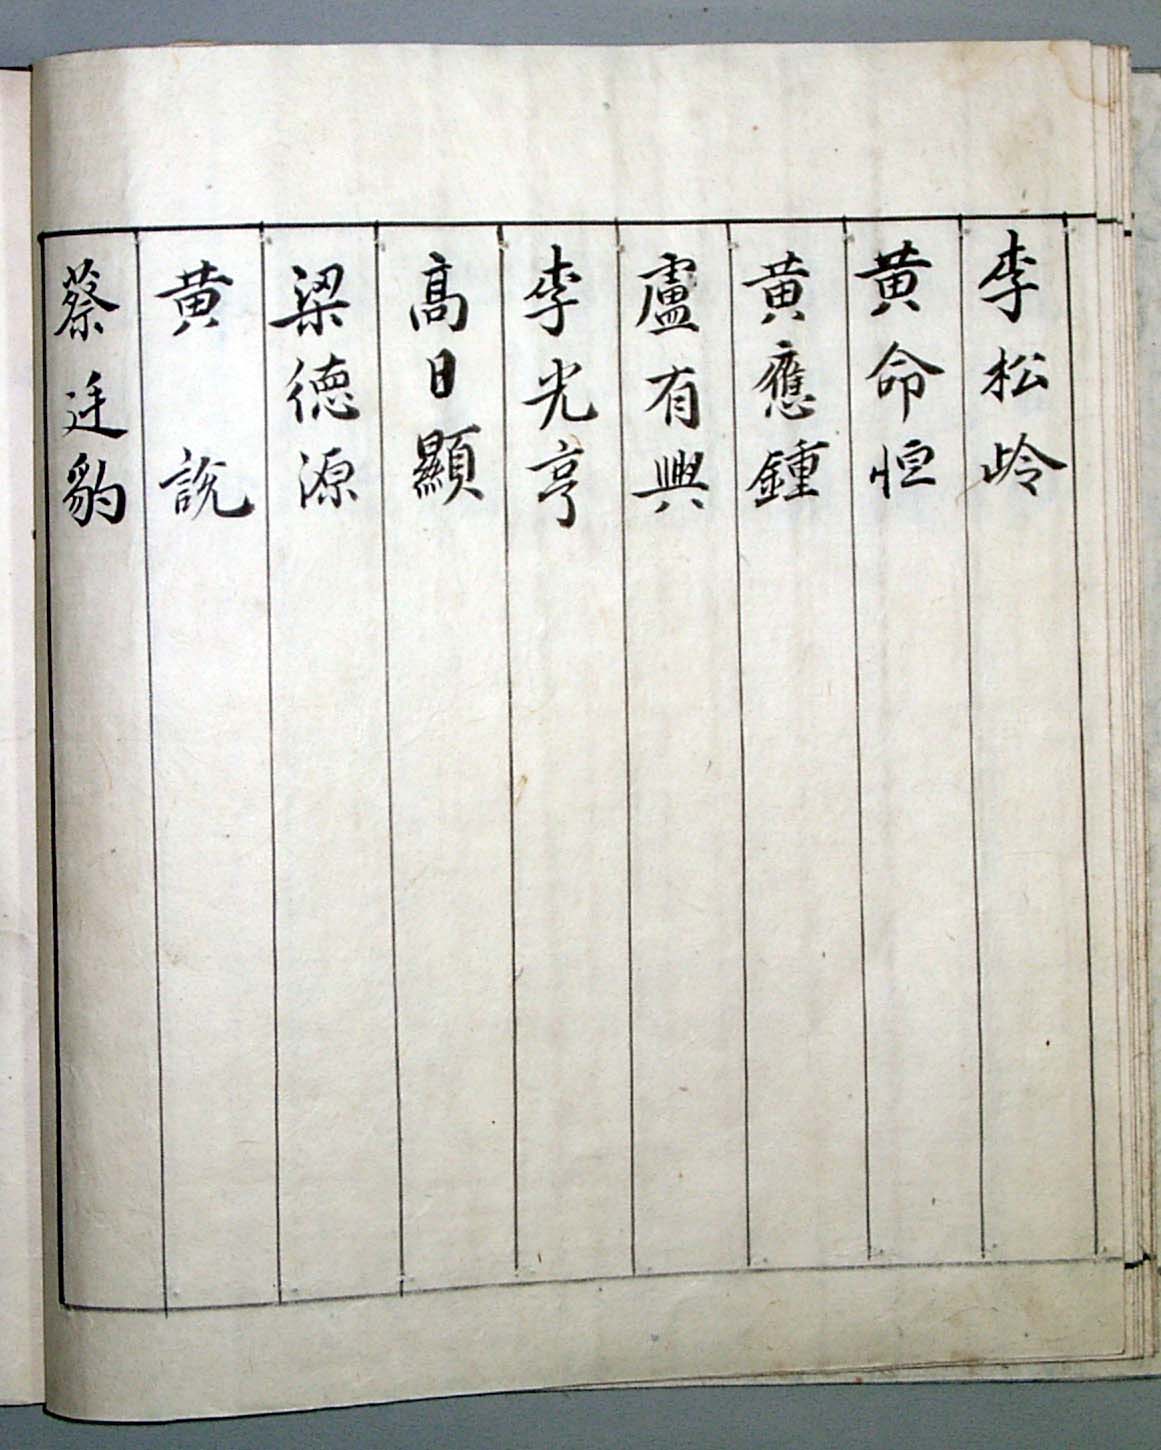 李松岭
黄命恒
黄應鍾
盧有興
李光亨
髙日顯
梁德源
黄說
蔡廷豹